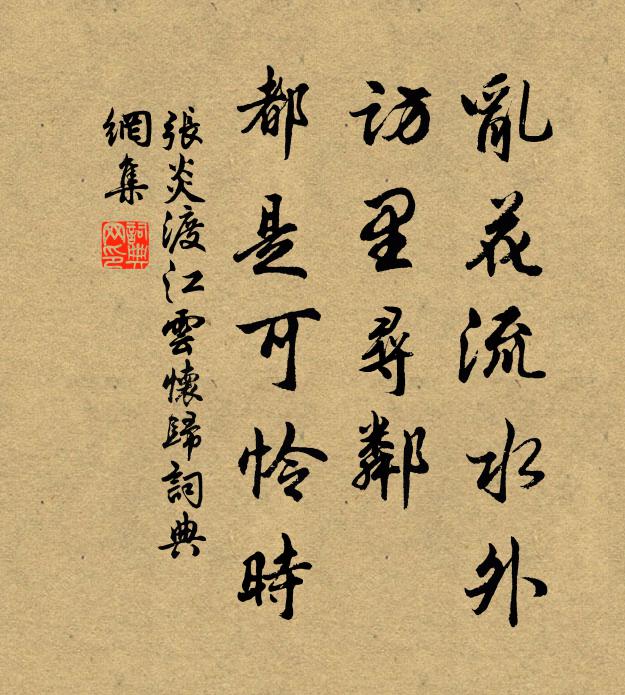 亂花流水外
訪里尋鄰
都是可憐時
張炎渡江雲懷歸詞典
網集
詞典
网印